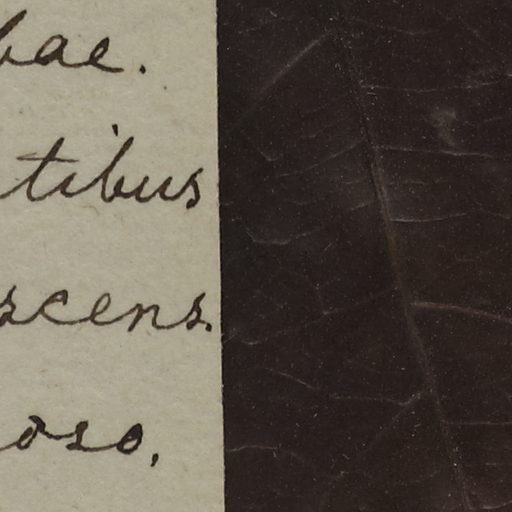 bae.
tibus
scens.
oso,